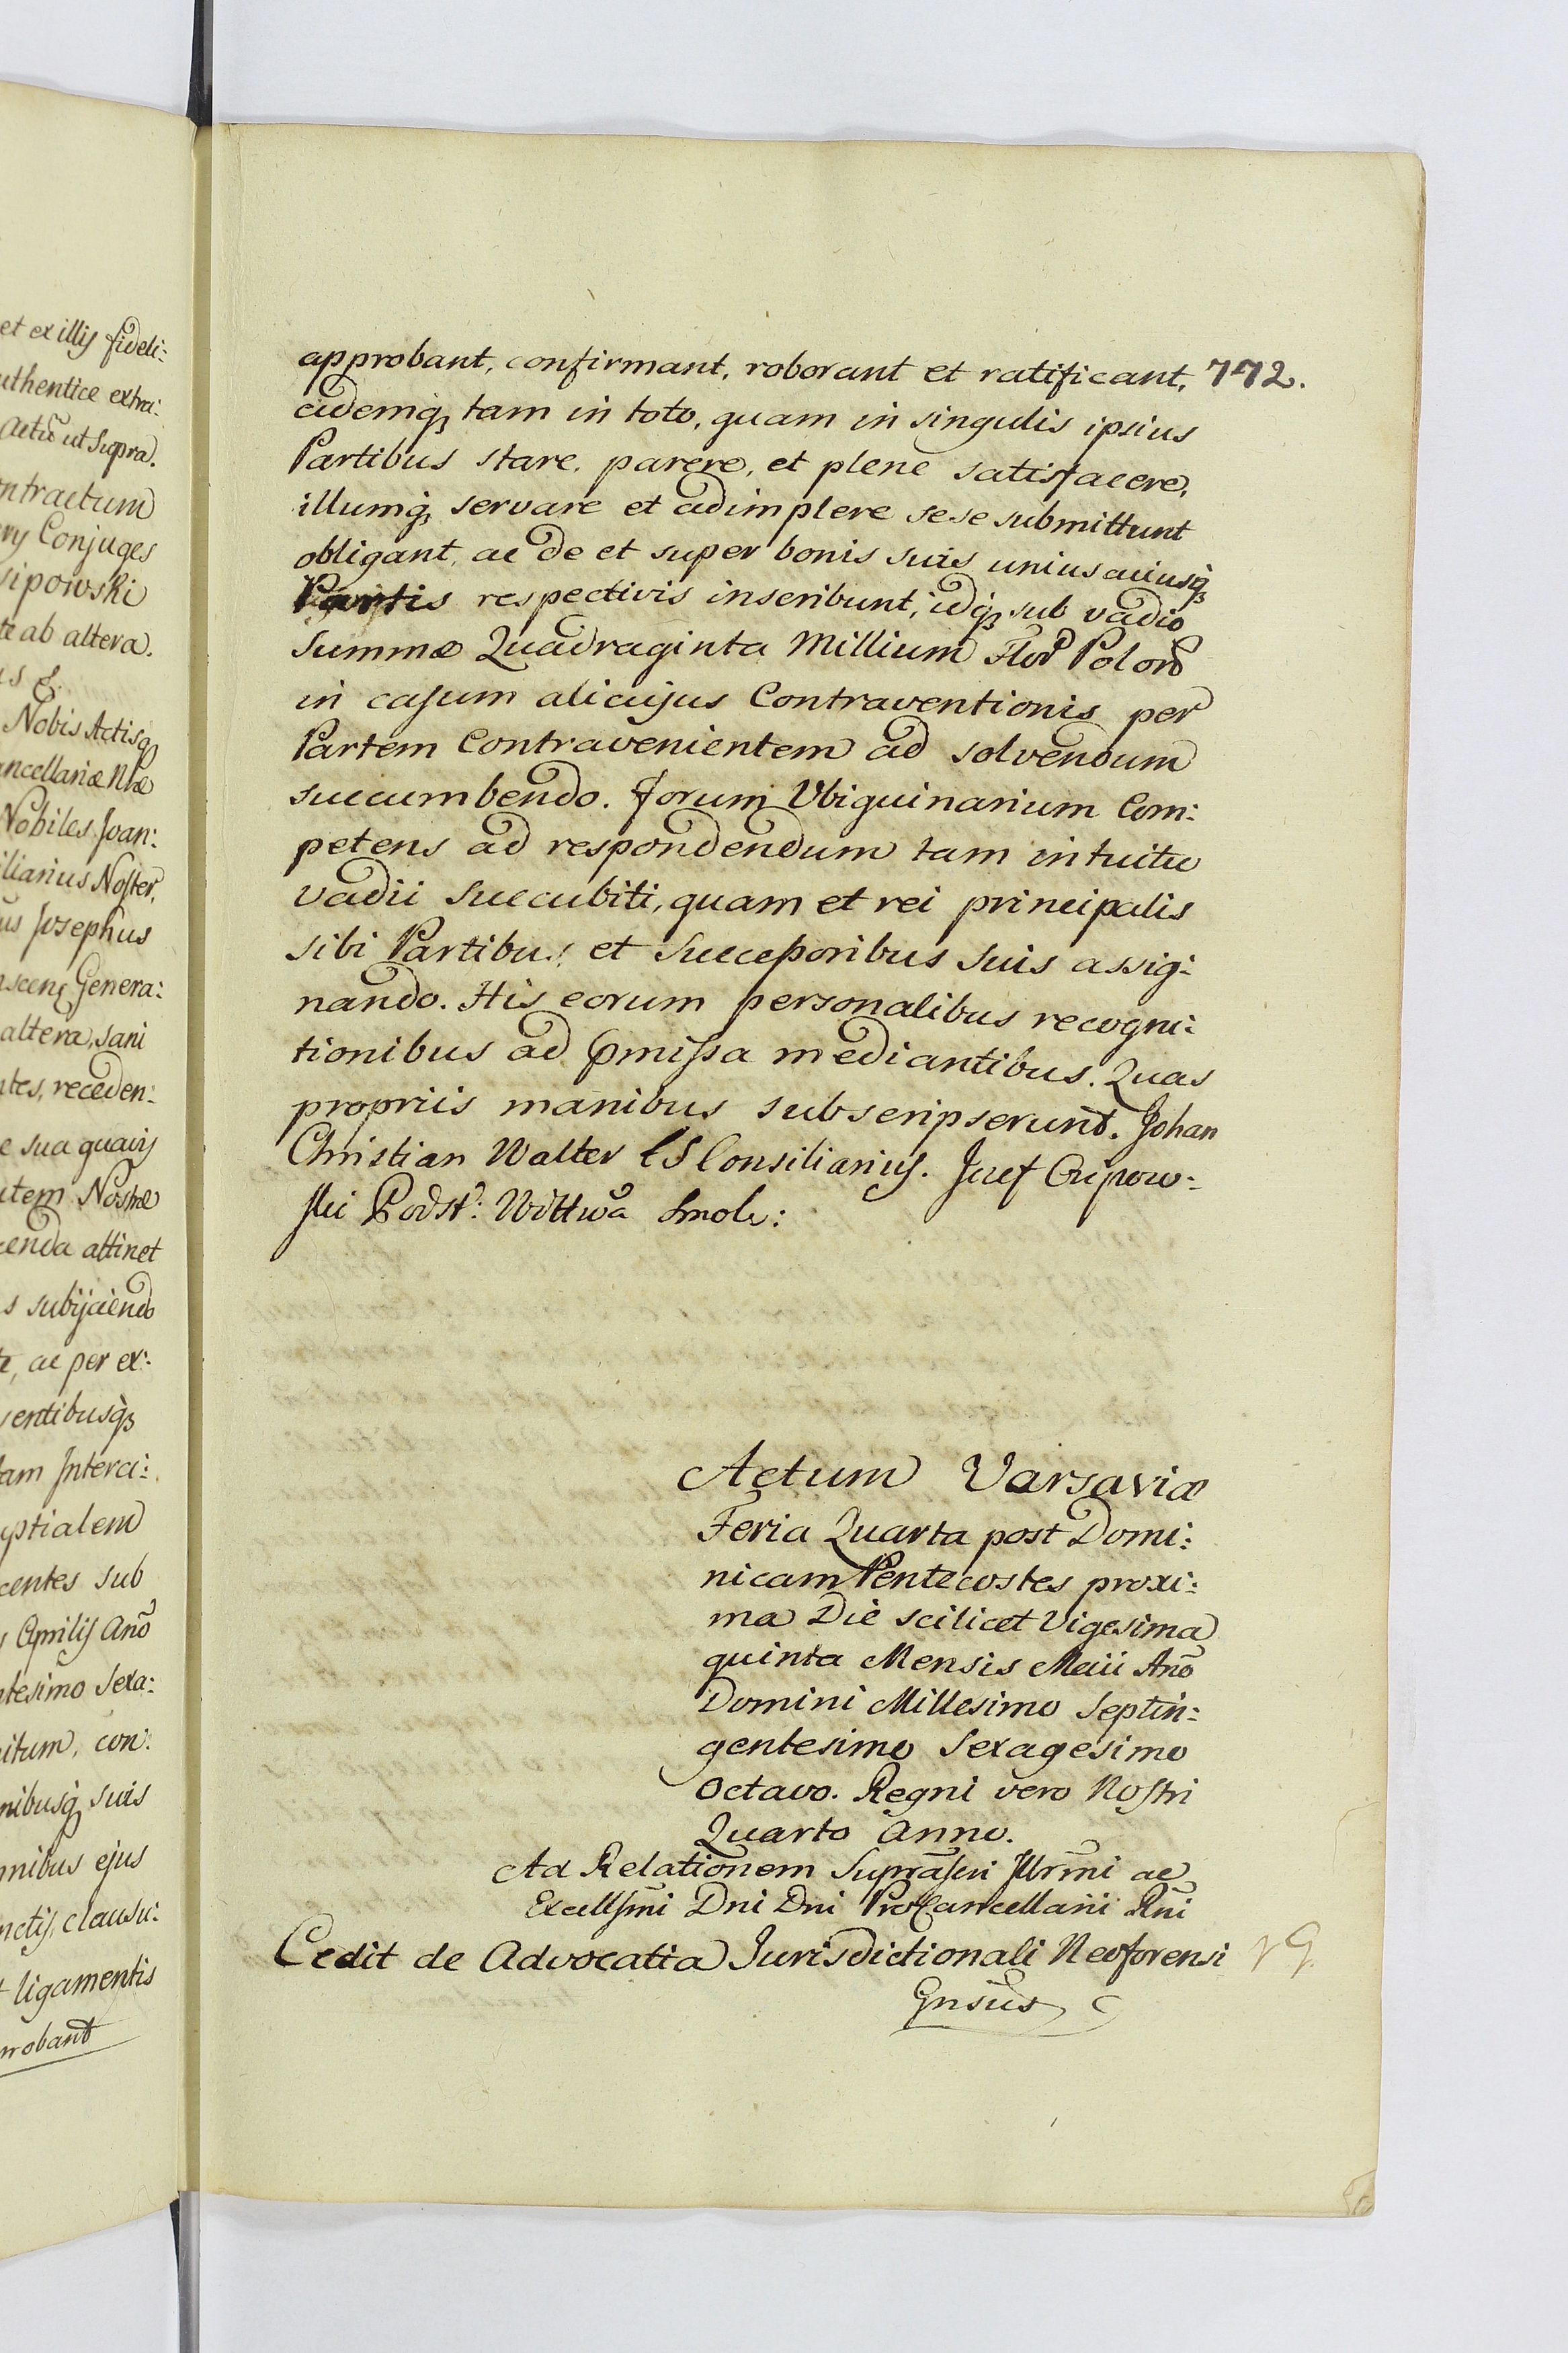 et ex illis fideli:
uthentice extra:
Actũ ut Supra.
ntractum
ry Conjuges
sipowski
te ab altera.
Nobis Actisq
ancellariæ Nræ
Nobiles Joan:
iliarius Noster,
us Josephus
Genera:
altera, sani
ntes, receden:
e sua quavis
utem Nostræ
cenda attinet
s subijciendo
te, ac per ex:
sentibusq
tam Interci:
uptialem
centes sub
Aprilis Anõ
ntesimo Sexa:
itum, con:
nibusq suis
mnibus ejus
nctis, clausu:
t ligamentis
probant
approbant, confirmant, roborant et ratificant, 772.
eidemq tam in toto, quam in singulis ipsius
Partibus stare, parere, et plene satisfacere,
illumq servare et adimplere sese submittunt
obligant, ac de et super bonis suis uniuscuiusq
Partis respectivis inscribunt, idq sub vadio
Summæ Quadraginta Millium Flor Polon
in casum alicujus Contraventionis per
Partem Contravenientem ad solvendum
succumbendo. Forum Ubiquinarium Com:
petens ad respondendum tam intuitu
vadii succubiti, quam et rei principalis
sibi Partibus et Successoribus suis assig:
nando. His eorum personalibus recogni:
tionibus ad pmissa mediantibus. Quas
propriis manibus subscripserunt. Johan
Christian Walter Consiliarius. Jozef Osipow:
ski Podst: Wdttwa Smol:
Actum Varsaviæ
Feria Quarta post Domi:
nicam Pentecostes proxi:
ma Die scilicet Vigesima
quinta Mensis Maii Anõ
Domini Millesimo Septin:
gentesimo Sexagesimo
Octavo. Regni vero Nostri
Quarto Anno.
Ad Relationem Suprascri Illrmi ac
Excellsmi Dni Dni ProCancellarii Rni
Cedit de Advocatia Jurisdictionali Neoforensi
Gnsũs